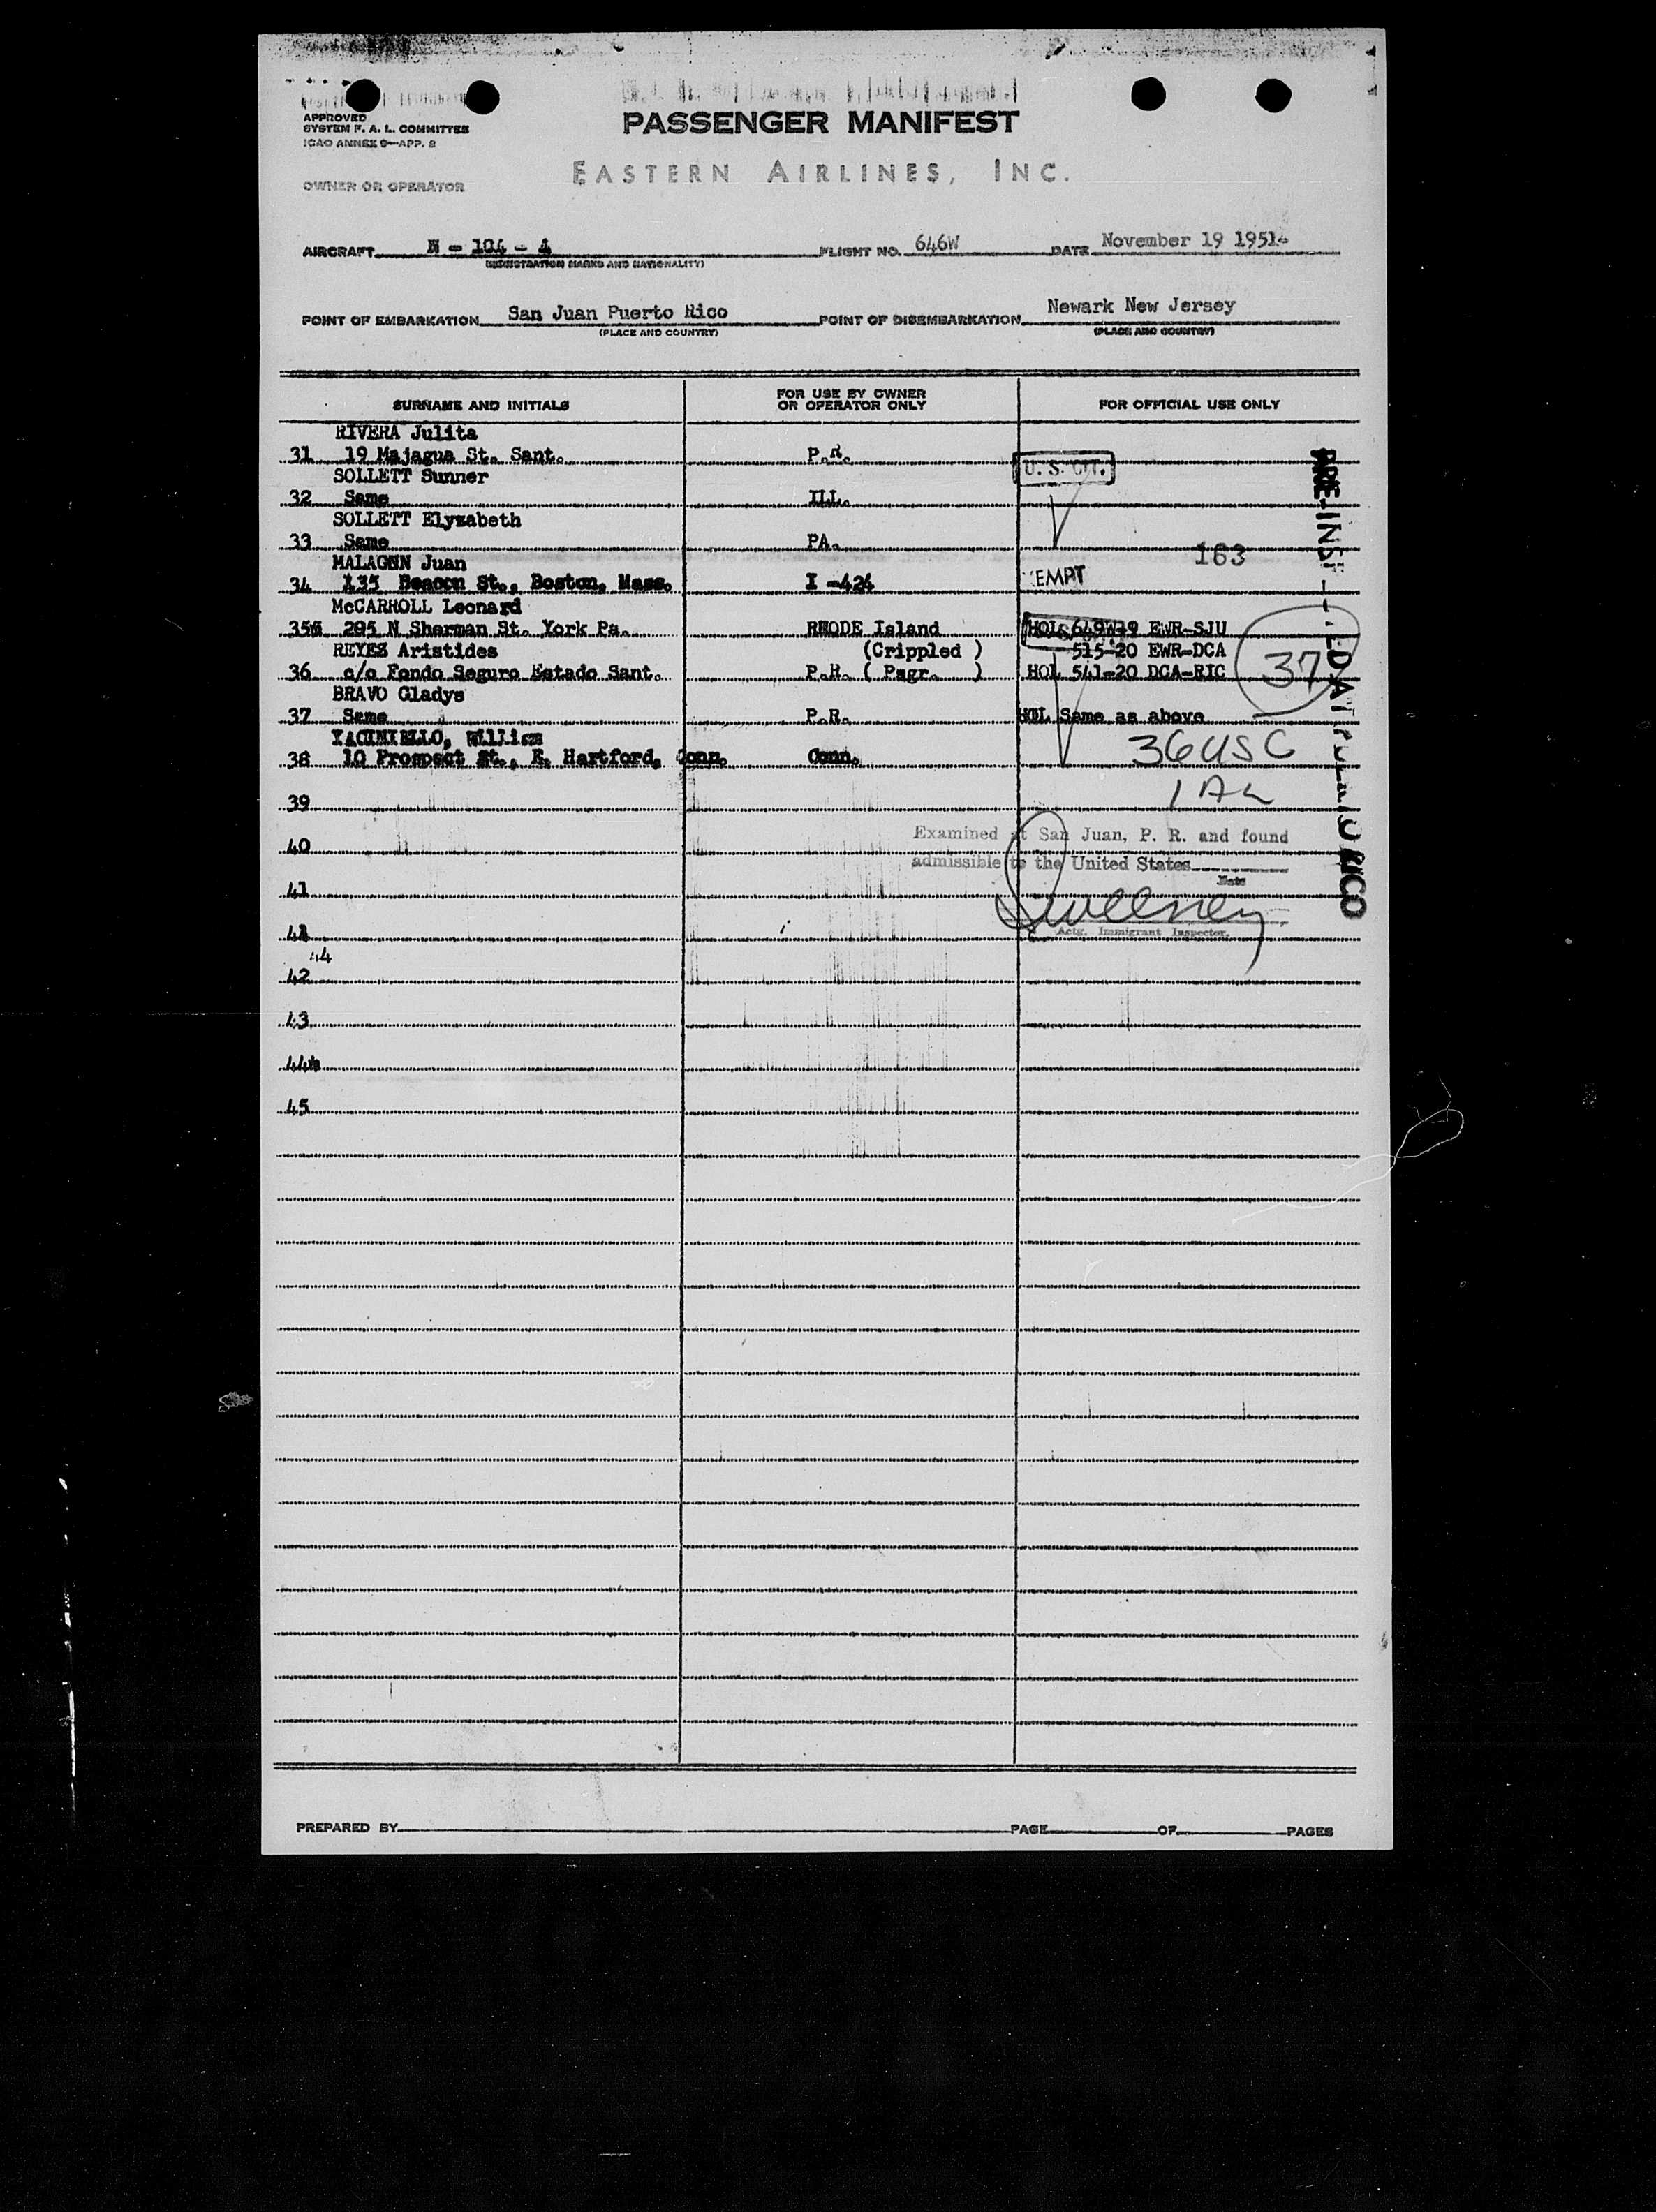 APPROVED
SYSTEM F. A. L. COMMITTEE
ICAO ANNEX 9—APP. 2
PASSENGER MANIFEST
OWNER OR OPERATOR
EASTERN AIRLINES, INC.
AIRCRAFT N - 104 - A FLIGHT NO. 646W DATE November 19 1951-
(REGISTRATION MARKS AND NATIONALITY)
POINT OF EMBARKATION San Juan Puerto Rico POINT OF DISEMBARKATION Newark New Jersey
(PLACE AND COUNTRY) (PLACE AND COUNTRY)
SURNAME AND INITIALS FOR USE BY OWNER OR OPERATOR ONLY FOR OFFICIAL USE ONLY
RIVERA Julita
31 19 Majagua St. Sant. P.R.
U. S. CIT.
SOLLETT Sunner
32 Same ILL.
SOLLETT Elyzabeth
33 Same PA.
163
MALAGON Juan
34 135 Beacon St., Boston, Mass. I -424 EMPT
McCARROLL Leonard
35 295 N Sherman St. York Pa. RHODE Island HOL 649W-19 EWR-SJU
REYES Aristides (Crippled ) 515-20 EWR-DCA
36 c/o Fondo Seguro Estado Sant. P.R. ( Psgr. ) HOL 541-20 DCA-RIC
37
BRAVO Gladys
37 Same P.R. HOL Same as above
YACINIELLO, William
38 10 Prospect St., E. Hartford, Conn. Conn.
36 USC
39
1 AL
Examined at San Juan, P. R. and found
40
admissible to the United States
Date
41
Sweeney
Actg. Immigrant Inspector.
42
43
44
45
PREPARED BY PAGE OF PAGES